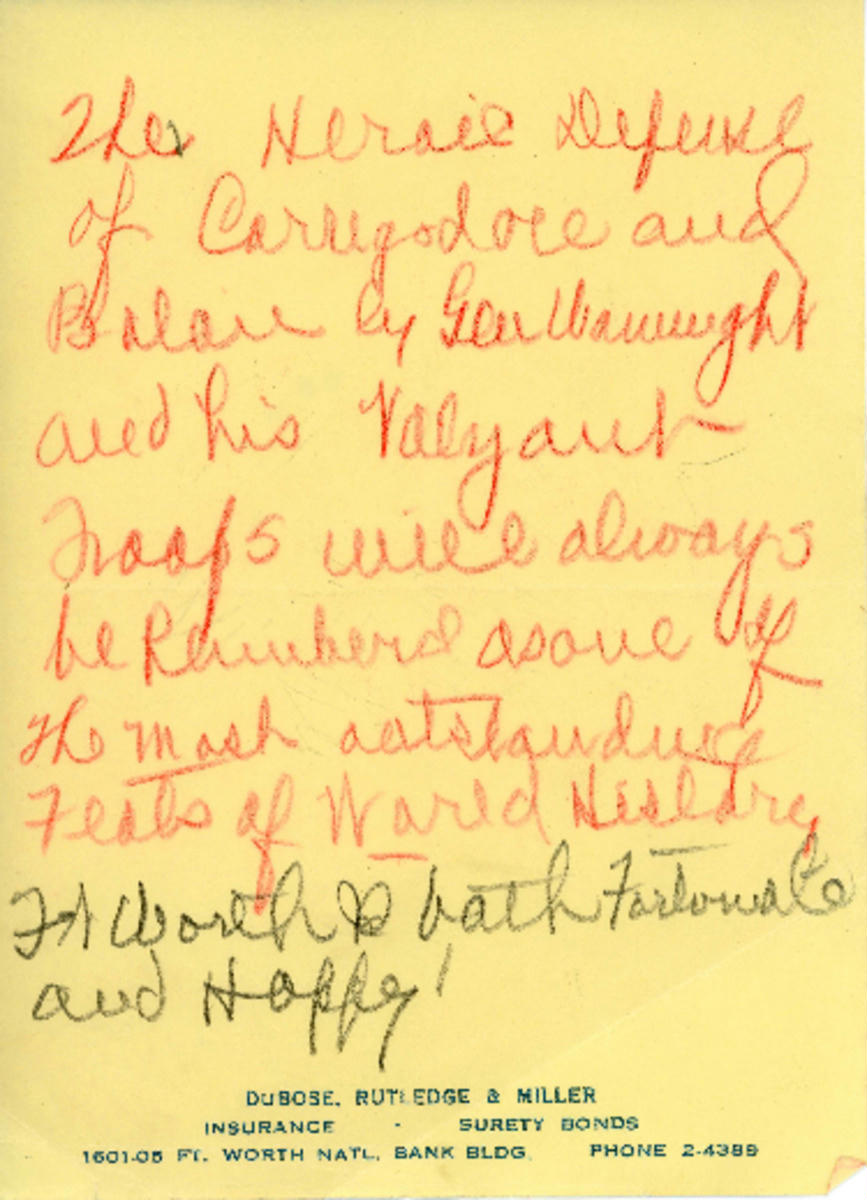 The Heroic Defense
of Corregodore and
Bataan by Gen Wainwright
and his Valyant
Troops will always
be Rembberd as one of
the most outstanding
Feats of World History
Ft Worth is both Fortunate
and Happy!
DUBOSE, RUTLEDGE & MILLER
INSURANCE - SURETY BONDS
1601-05 FT. WORTH NATL. BANK BLDG. PHONE 2-4389